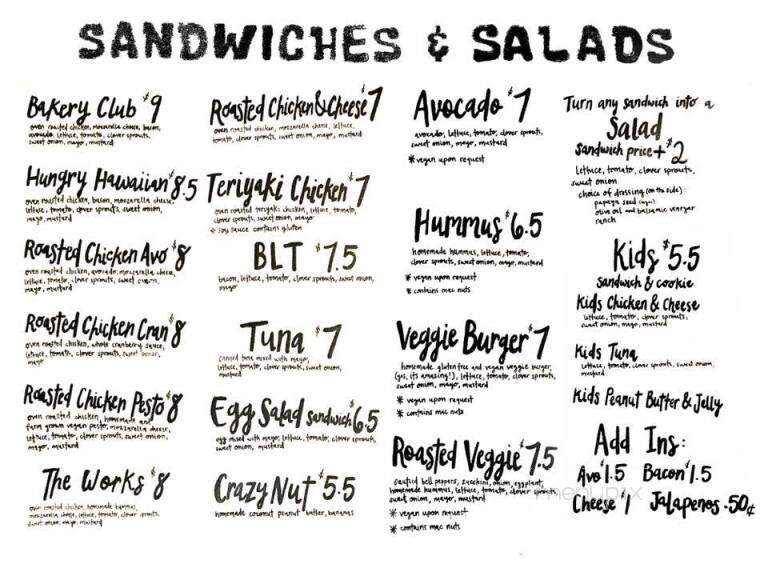 SANDWICHES & SALADS
Bakery Club $9
oven roasted chicken, mozzarella cheese, bacon,
avocado, lettuce, tomato, clover sprouts,
sweet onion, mayo, mustard
Hungry Hawaiian $8.5
oven roasted chicken, bacon, mozzarella cheese,
lettuce, tomato, clover sprouts, sweet onion,
mayo, mustard
Roasted Chicken Avo $8
oven roasted chicken, avocado, mozzarella cheese,
lettuce, tomato, clover sprouts, sweet onion,
mayo, mustard
Roasted Chicken Cran $8
oven roasted chicken, whole cranberry sauce,
lettuce, tomato, clover sprouts, sweet onion,
mayo
Roasted Chicken Pesto $8
oven roasted chicken, homemade and
farm grown vegan pesto, mozzarella cheese,
lettuce, tomato, clover sprouts, sweet onion,
mayo, mustard
The Works $8
oven roasted chicken, homemade hummus,
mozzarella cheese, lettuce, tomato, clover sprouts,
sweet onion, mayo, mustard
Roasted Chicken & Cheese $7
oven roasted chicken, mozzarella cheese, lettuce,
tomato, clover sprouts, sweet onion, mayo, mustard
Teriyaki Chicken $7
oven roasted teriyaki chicken, lettuce, tomato,
clover sprouts, sweet onion, mayo
* soy sauce contains gluten
BLT $7.5
bacon, lettuce, tomato, clover sprouts, sweet onion,
mayo
Tuna $7
canned tuna mixed with mayo,
lettuce, tomato, clover sprouts, sweet onion,
mustard
Egg Salad sandwich $6.5
egg mixed with mayo, lettuce, tomato, clover sprouts,
sweet onion, mustard
Crazy Nut $5.5
homemade coconut peanut butter, bananas
Avocado $7
avocado, lettuce, tomato, clover sprouts,
sweet onion, mayo, mustard
* vegan upon request
Hummus $6.5
homemade hummus, lettuce, tomato,
clover sprouts, sweet onion, mayo, mustard
* vegan upon request
* contains mac nuts
Veggie Burger $7
homemade gluten free and vegan veggie burger,
(yes, its amazing!), lettuce, tomato, clover sprouts,
sweet onion, mayo, mustard
* vegan upon request
* contains mac nuts
Roasted Veggie $7.5
sauteed bell peppers, zucchini, onion, eggplant,
homemade hummus, lettuce, tomato, clover sprouts,
sweet onion, mayo, mustard
* vegan upon request
* contains mac nuts
Turn any sandwich into a
Salad
sandwich price + $2
lettuce, tomato, clover sprouts,
sweet onion
choice of dressing (on the side):
papaya seed
olive oil and balsamic vinegar
ranch
Kids $5.5
sandwich & cookie
Kids Chicken & Cheese
lettuce, tomato, clover sprouts,
sweet onion, mayo, mustard
Kids Tuna
lettuce, tomato, clover sprouts, sweet onion,
mustard
Kids Peanut Butter & Jelly
Add Ins:
Avo $1.5 Bacon $1.5
Cheese $1 Jalapenos .50¢
menupix